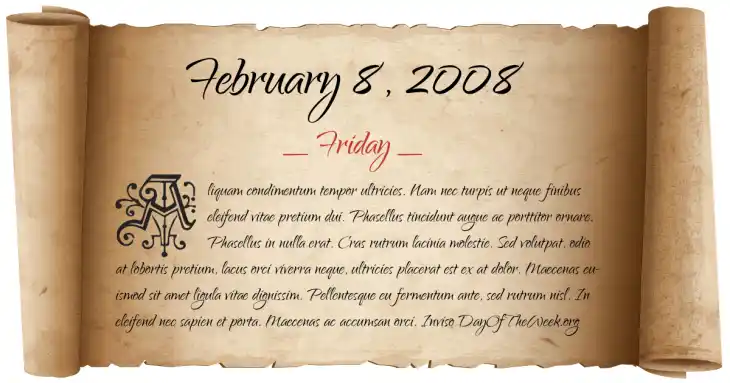 February 8, 2008
_ Friday _
Aliquam condimentum tempor ultricies. Nam nec turpis ut neque finibus
eleifend vitae pretium dui. Phasellus tincidunt augue ac porttitor ornare.
Phasellus in nulla erat. Cras rutrum lacinia molestie. Sed volutpat, odio
at lobortis pretium, lacus orci viverra neque, ultricies placerat est ex at dolor. Maecenas eu-
ismod sit amet ligula vitae dignissim. Pellentesque eu fermentum ante, sed rutrum nisl. In
eleifend nec sapien et porta. Maecenas ac accumsan orci. Inviso DayOfTheWeek.org